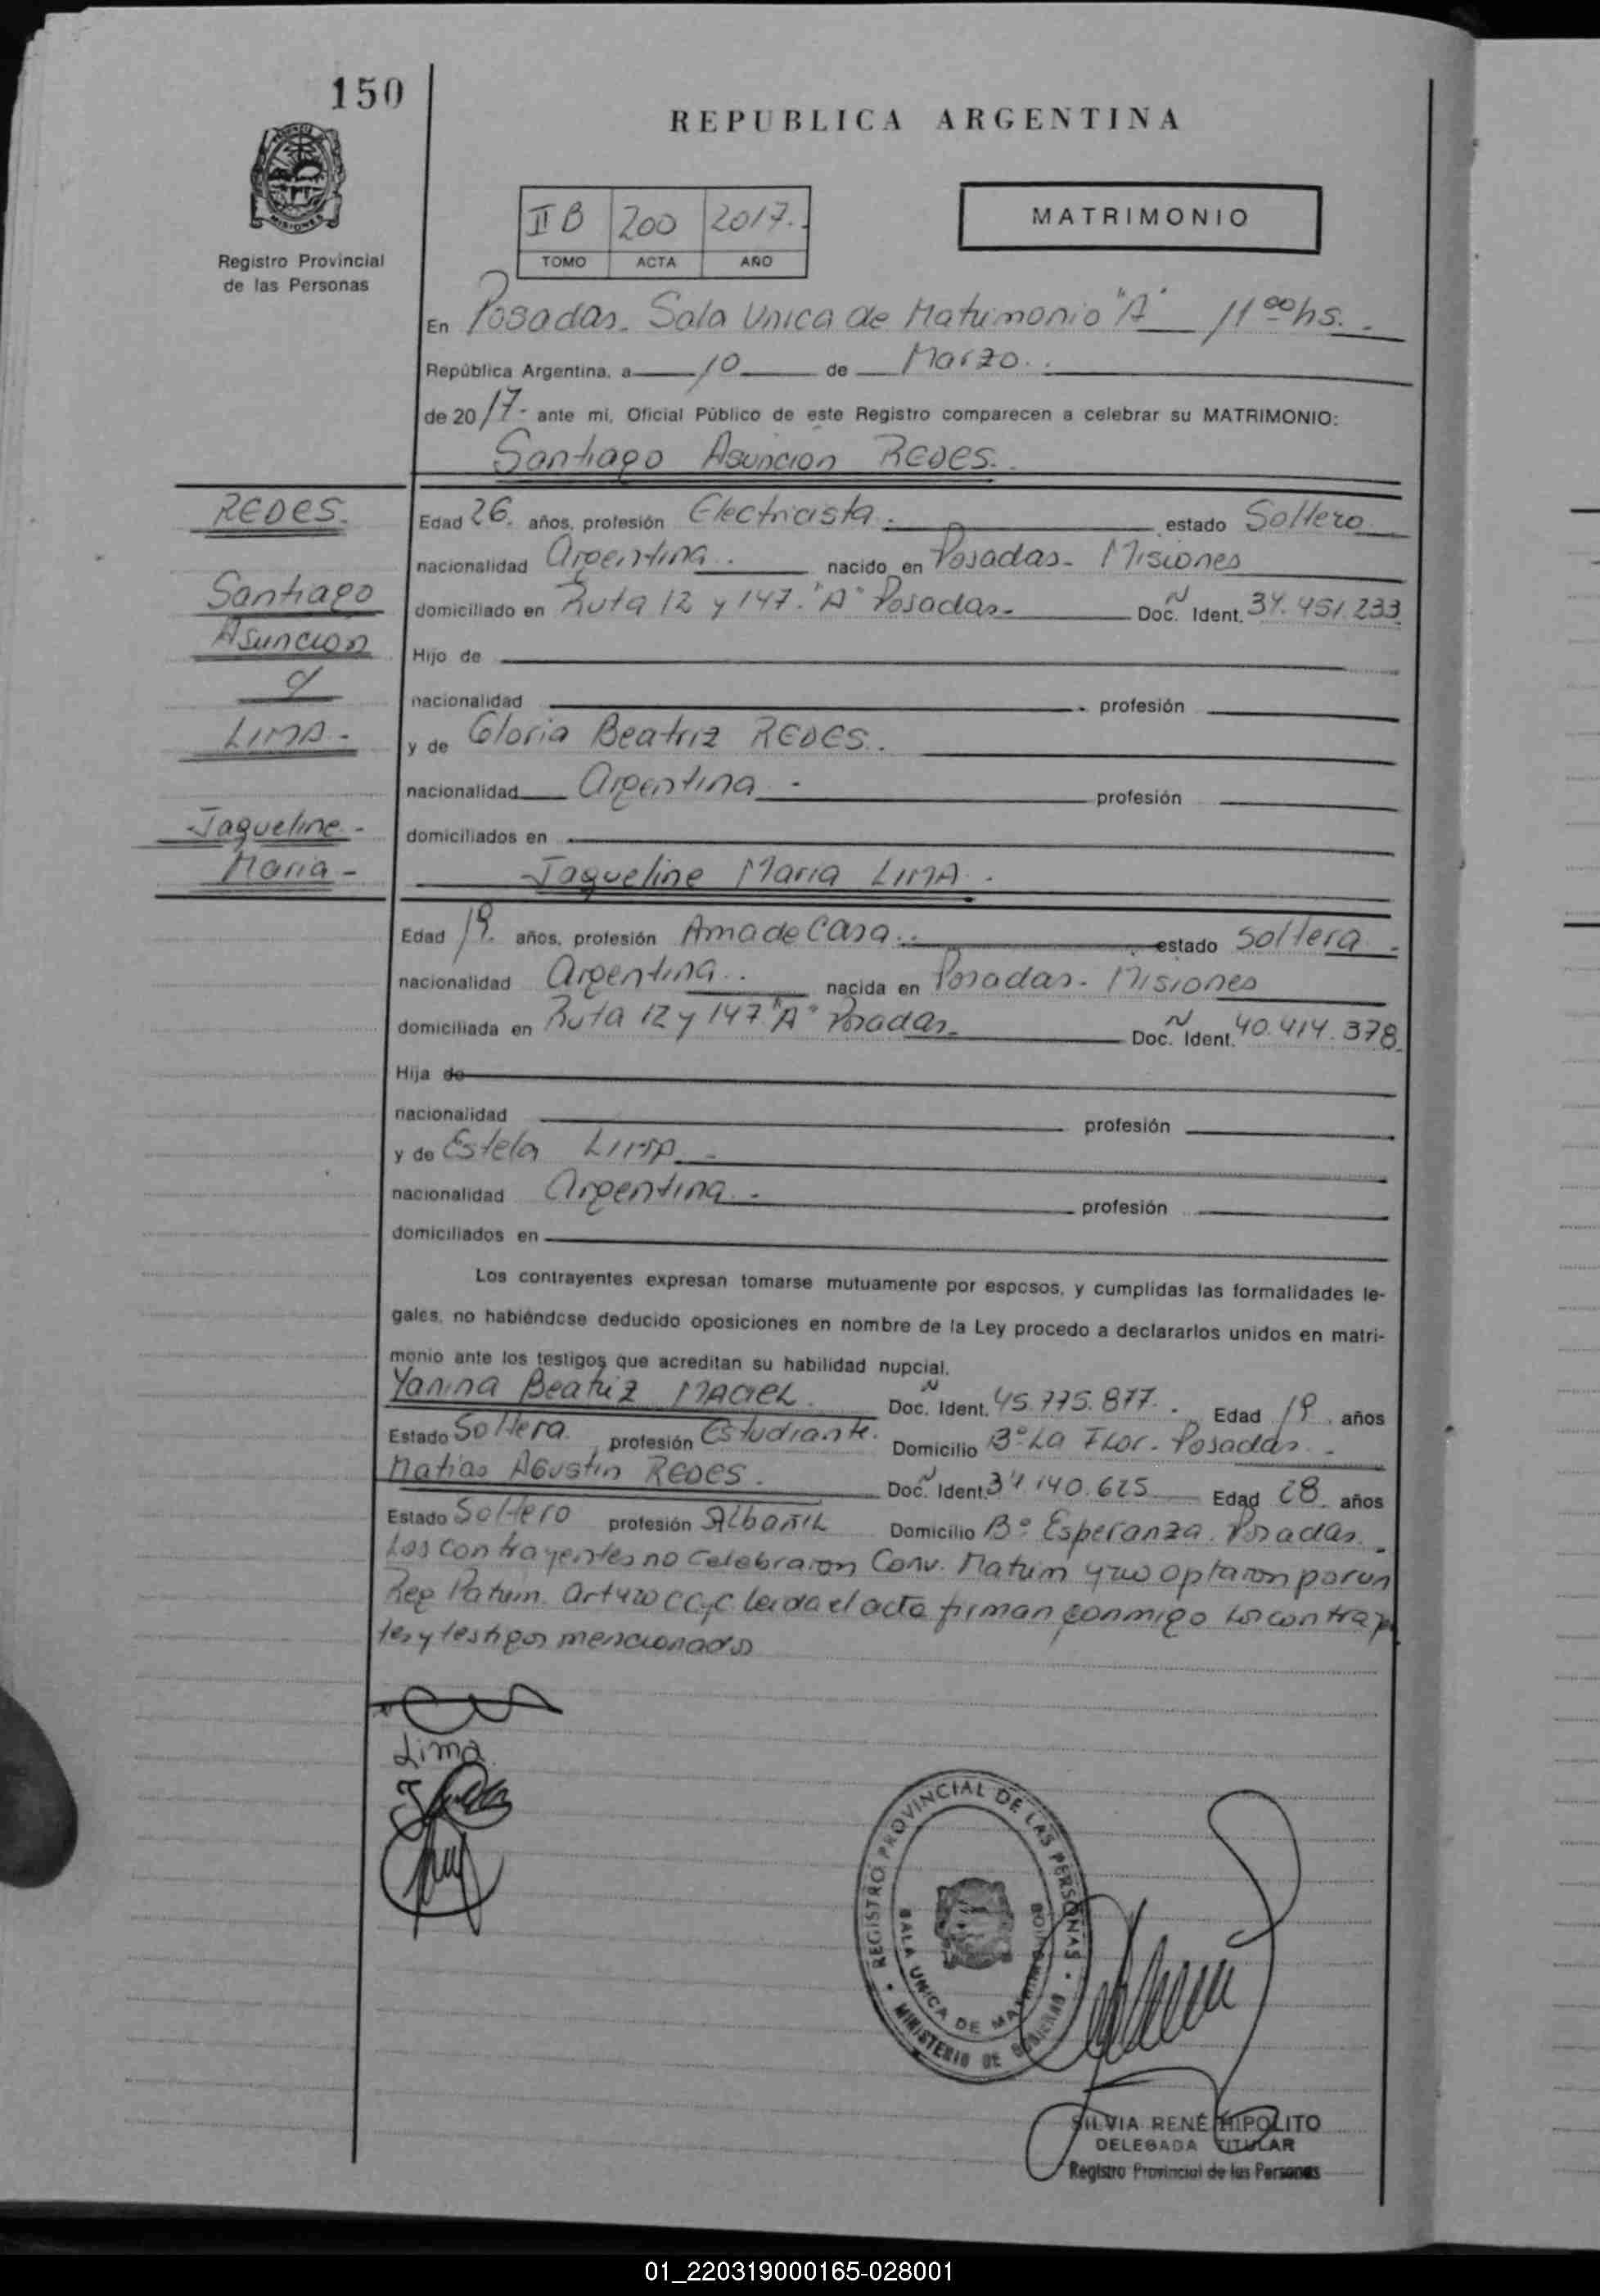 150
REPUBLICA ARGENTINA
II B 200 2017.
TOMO ACTA AÑO
MATRIMONIO
Registro Provincial
de las Personas
En Posadas. Sala Unica de Matrimonio "A" 11 00 hs.
República Argentina, a 10 de Marzo.
de 2017- ante mi, Oficial Público de este Registro comparecen a celebrar su MATRIMONIO:
Santiago Asuncion REDES.
REDES.
Santiago
Asuncion
y
LIMA-
Jaqueline-
Maria-
Edad 26. años, profesión Electricista. estado Soltero
nacionalidad Argentina. nacido en Posadas- Misiones
domiciliado en Ruta 12 y 147. "A" Posadas- Doc. Ident. 34.451.233
Hijo de
nacionalidad profesión
y de Gloria Beatriz REDES.
nacionalidad Argentina - profesión
domiciliados en
Jaqueline Maria LIMA.
Edad 19. años, profesión Ama de Casa. estado Soltera
nacionalidad Argentina.. nacida en Posadas- Misiones
domiciliada en Ruta 12 y 147 "A" Posadas- Doc. Ident. 40.414.378
Hija de
nacionalidad profesión
y de Estela LIMA -
nacionalidad Argentina - profesión
domiciliados en
Los contrayentes expresan tomarse mutuamente por esposos, y cumplidas las formalidades le-
gales, no habiéndose deducido oposiciones en nombre de la Ley procedo a declararlos unidos en matri-
monio ante los testigos que acreditan su habilidad nupcial.
Yanina Beatriz MACIEL. Doc. Ident. 45.775.877. Edad 19. años
Estado Soltera. profesión Estudiante. Domicilio Bº La Flor. Posadas.
Matias Agustin REDES. Doc. Ident. 34.140.625 Edad 28. años
Estado Soltero profesión Albañil Domicilio Bº Esperanza. Posadas.
Los contrayentes no celebraron Conv. Matrim y no optaron por un
Reg Patrim. Art 420 CCyC leida el acta firman conmigo los contrayen
tes y testigos mencionados
Lima
REGISTRO PROVINCIAL DE LAS PERSONAS
SALA UNICA DE MATRIMONIOS
MINISTERIO DE GOBIERNO
SILVIA RENÉ HIPOLITO
DELEGADA TITULAR
Registro Provincial de las Personas
01_220319000165-028001